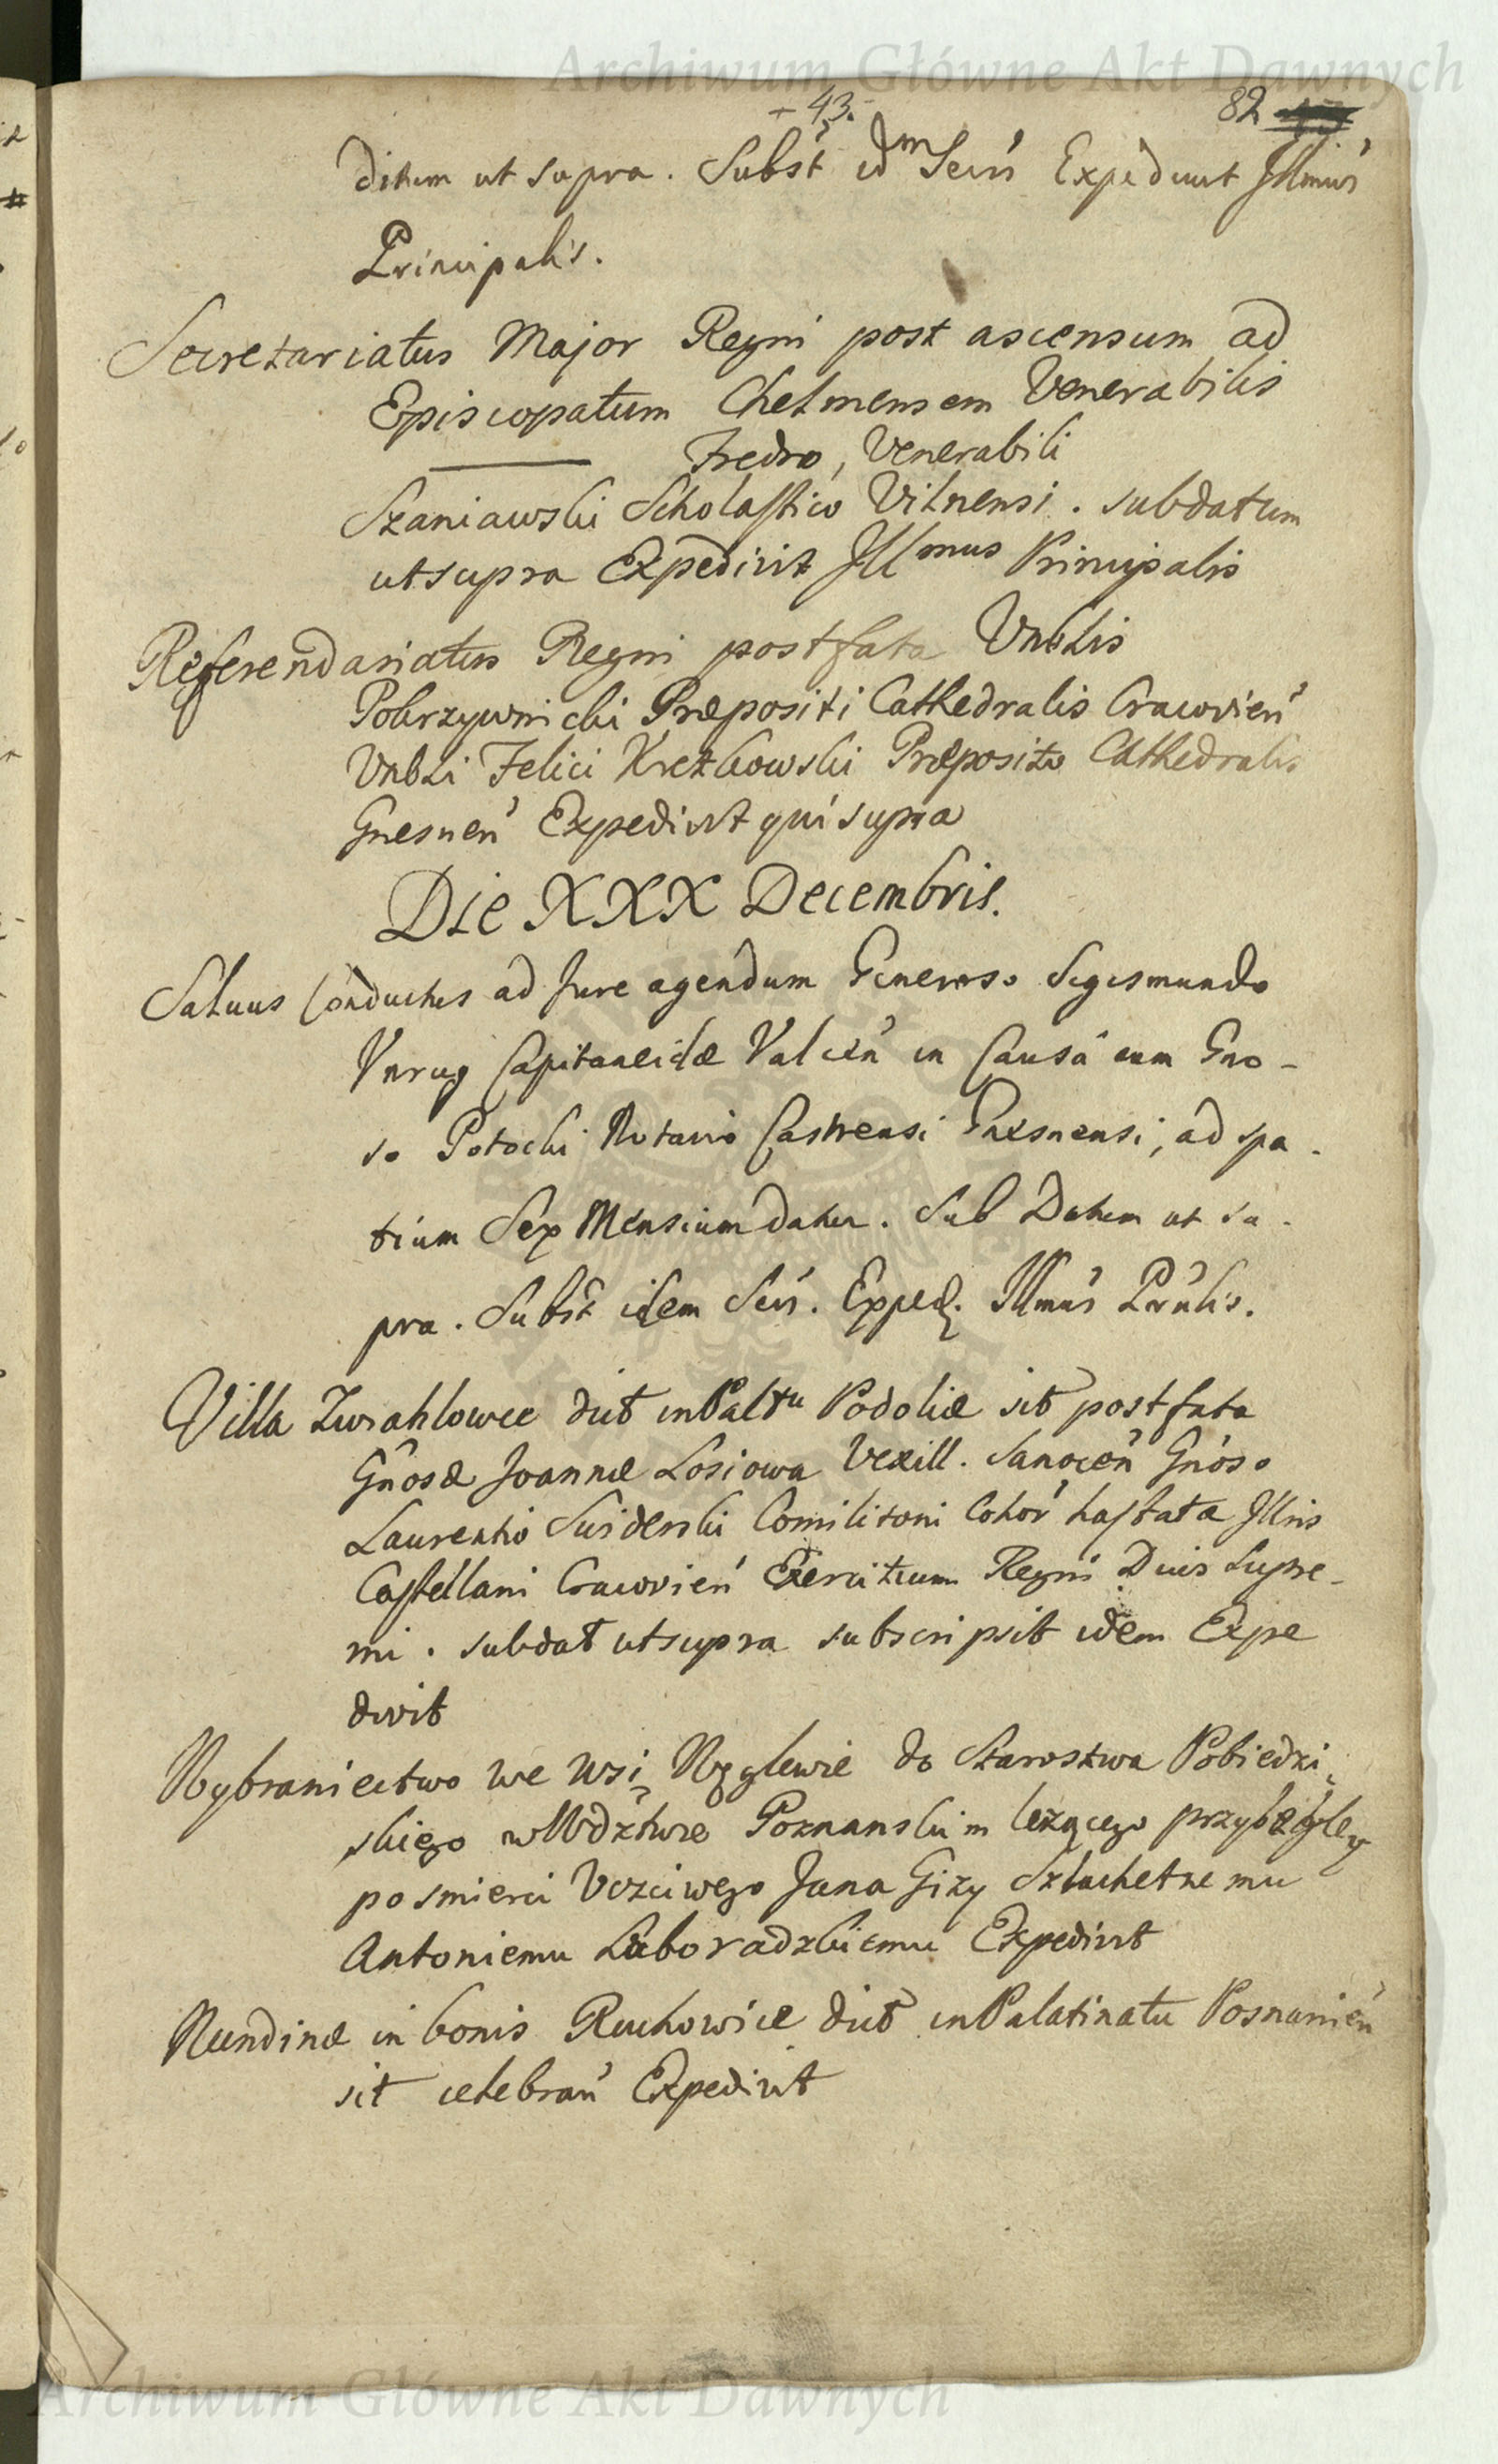 Archiwum Główne Akt Dawnych
- 43. 82
ditum ut supra. Subst id^m Secrs Expedivit Jllmus
Principalis.
Secretariatus Major Regni post ascensum ad
Episcopatum Chelmensem Venerabilis
——— Fredro, Venerabili
Szaniawski Scholastico Vilnensi. subdatum
utsupra Expedivit Jllmus Principalis
Referendariatus Regni postfata Vnblis
Pokrzywnicki Præpositi Cathedralis Cracovien
Vnbli Felici Kretkowski Præposito Cathedralis
Gnesnen Expedivit qui supra
Die XXX Decembris.
Saluus Conductus ad Jure agendum Generoso Sigismundo
Vnrug Capitaneidæ Valcen in Causa cum Gno-
so Potocki Notario Castrensi Gnesnensi, ad spa.
tium Sex Mensium datur. Sub Datum ut su.
pra. Subst idem Secrs. Exped. Jllmus Prnlis.
Villa Zurahlowce dict inPaltu Podoliæ sit postfata
Gnosæ Joannæ Losiowa Vexill. Sanocen Gnoso
Laurentio Swiderski Comilitoni Cohor hastata Jllris
Castellani Cracovien Exercituum Regni Ducis Supre-
mi. subdat utsupra subscripsit idem Expe
divit
Wybraniectwo we wsi Węglewie do Starostwa Pobiedzi.
skiego wWdztwie Poznanskim lezącego
posmierci Vczciwego Jana Gizy Szlachetnemu
Antoniemu Laboradzkiemu Expedivit
Nundinæ in bonis Ruchowice dict inPalatinatu Posnanien
sit celebran Expedivit
Archiwum Główne Akt Dawnych